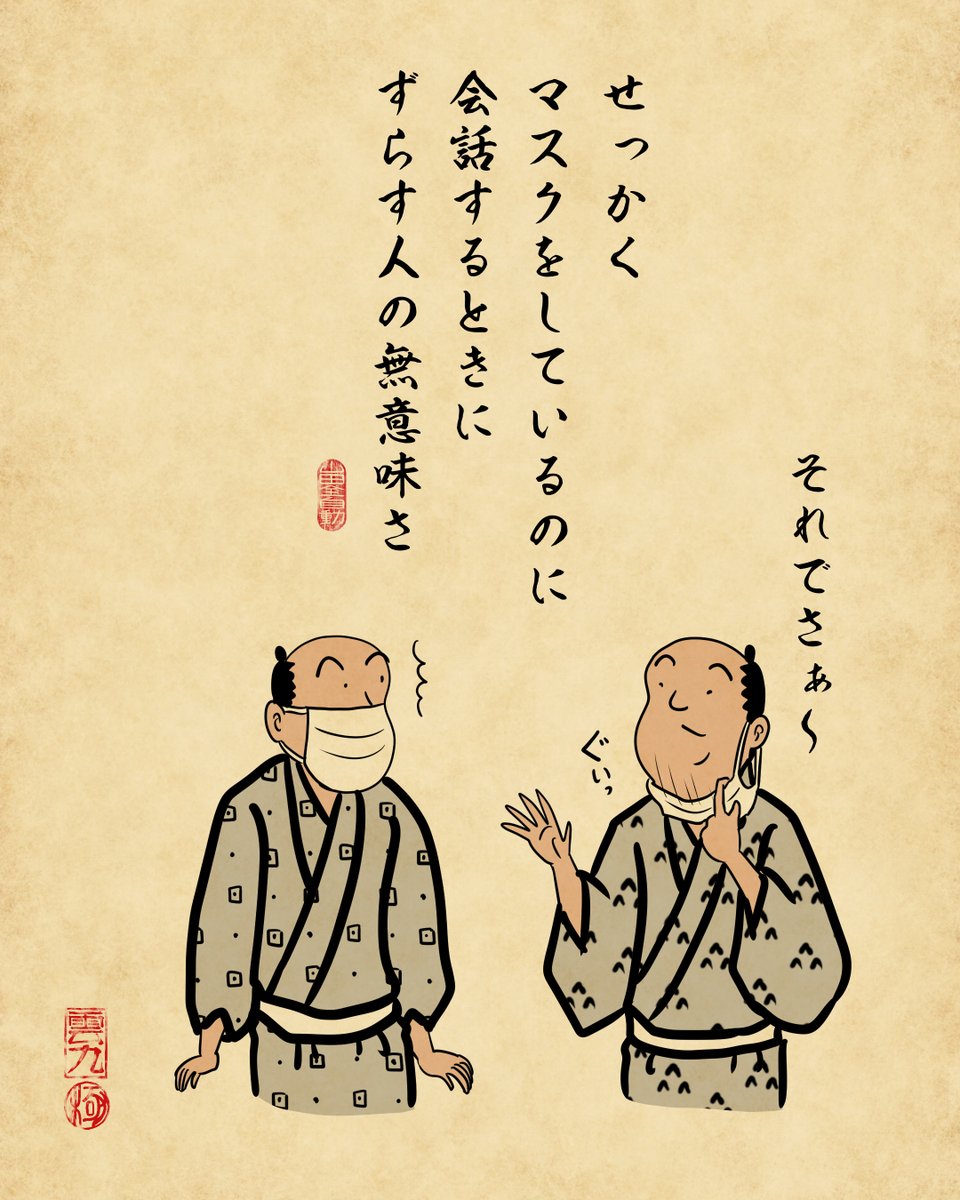 せっかく
マスクをしているのに
会話するときに
ずらす人の無意味さ
それでさぁ〜
ぐいっ